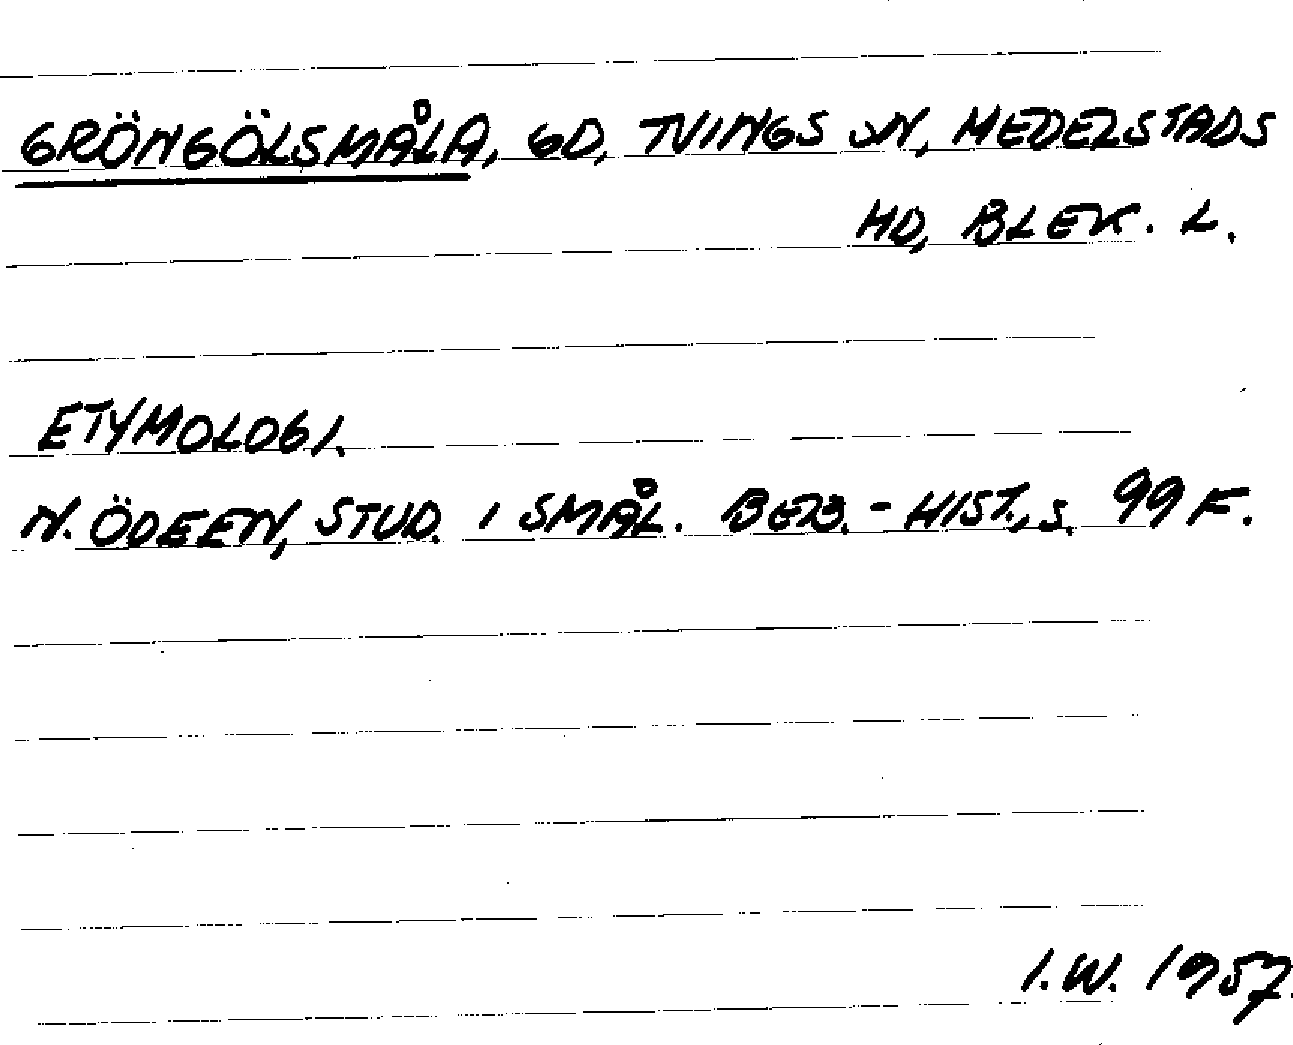 GRÖNGÖLSMÅLA, GD, TVINGS SN, MEDELSTADS
HD, BLEK. L.
ETYMOLOGI.
N. ÖDEEN, STUD. I SMÅL. BEB.-HIST., S. 99 F.
I.W. 1957.